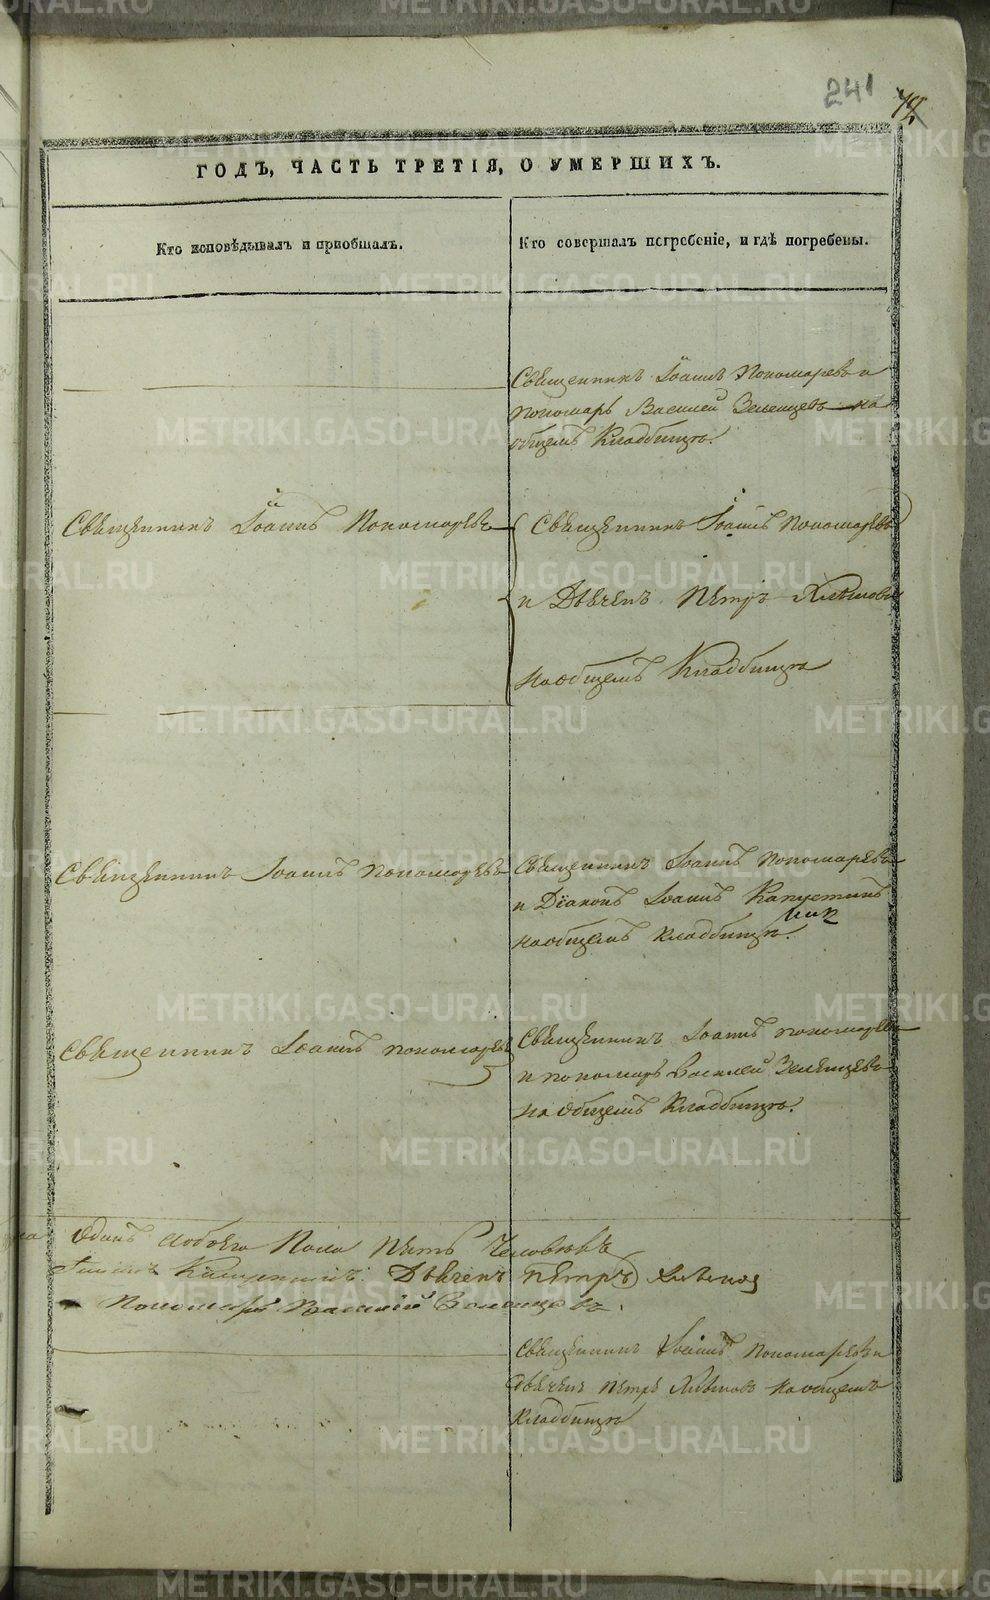 241
72
ГОДЪ, ЧАСТЬ ТРЕТІЯ, О УМЕРШИХЪ.
Кто исповѣдывалъ и пріобщалъ.
Кто совершалъ погребеніе, и гдѣ погребены.
Священникъ Іоаннъ Пономаревъ и
пономарь Василей Зеленцовъ на
общемъ Кладбищѣ.
Священникъ Іоаннъ Пономаревъ
Священникъ Іоаннъ Пономаревъ
и Дьячекъ Петръ Хлѣбновъ
на общемъ Кладбищѣ
Священникъ Іоаннъ Пономаревъ
Священникъ Іоаннъ Пономаревъ
и Діаконъ Іоаннъ Капустинъ
на общемъ Кладбищѣ.
Священникъ Іоаннъ Пономаревъ
Священникъ Іоаннъ Пономаревъ
и пономарь Василей Зеленцовъ
на общемъ Кладбищѣ.
Одинъ обоего Пола Пять Человѣкъ
Дьячекъ Петръ
Пономарь Василій
Священникъ Іоаннъ Пономаревъ и
Дьячекъ Петръ на общемъ
Кладбищѣ
METRIKI.GASO-URAL.RU